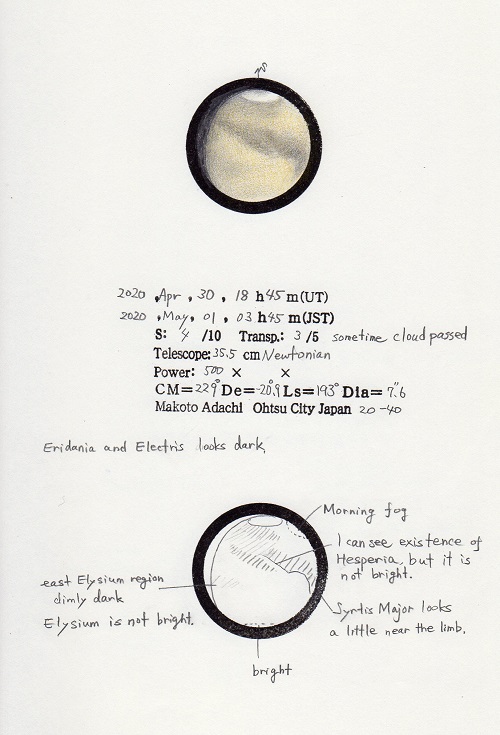 2020 . Apr . 30 . 18 h 45 m (UT)
2020 . May . 01 . 03 h 45 m (JST)
S: 4 /10 Transp.: 3 /5 sometime cloud passed
Telescope: 35.5 cm Newtonian
Power: 500 × ×
CM=229° De=-20.9° Ls=193° Dia=7.6"
Makoto Adachi Ohtsu City Japan 20-40
Eridania and Electris looks dark,
Morning fog
I can see existence of
Hesperia, but it is
not bright.
east Elysium region
dimly dark
Elysium is not bright.
Syrtis Major looks
a little near the limb.
bright